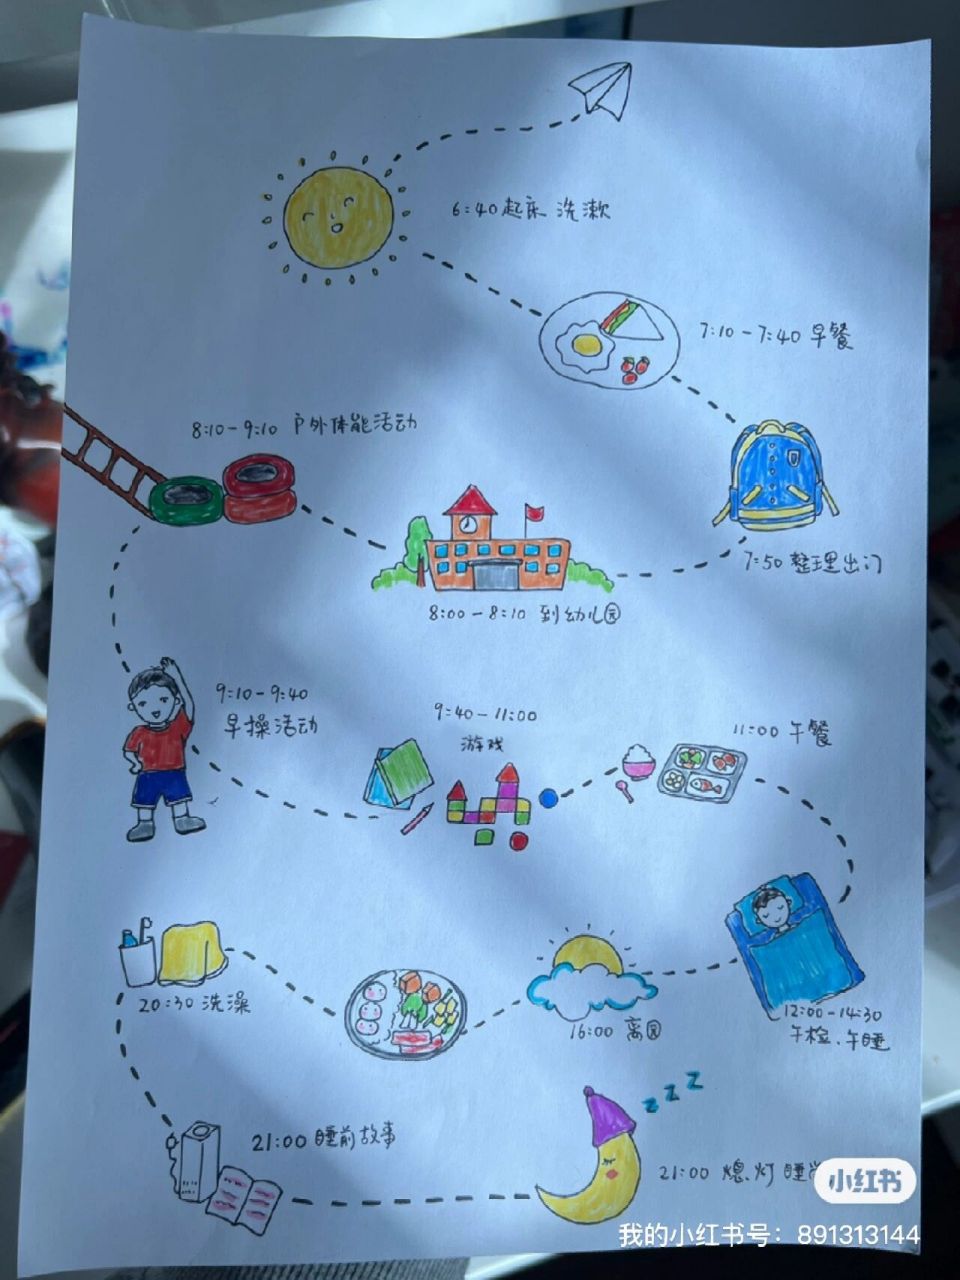 6:40起床 洗漱
7:10-7:40 早餐
7:50 整理出门
8:00-8:10 到幼儿园
8:10-9:10 户外体能活动
9:10-9:40
早操活动
9:40-11:00
游戏
11:00 午餐
12:00-14:30
午检、午睡
16:00 离园
20:30 洗澡
21:00 睡前故事
21:00 熄灯 睡
z z z
小红书
我的小红书号：891313144